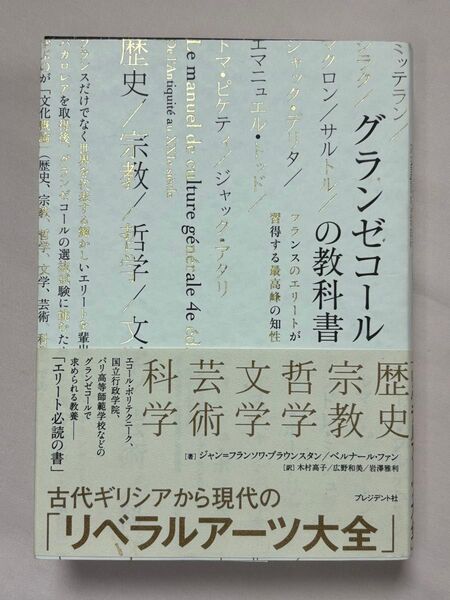 グランゼコールの教科書
フランスのエリートが
習得する最高峰の知性
ミッテラン／
シラク／
マクロン／サルトル／
ジャック・デリダ／
エマニュエル・トッド／
トマ・ピケティ／ジャック・アタリ
Le manuel de culture générale 4e éd
De l'Antiquité au XXIe siècle
歴史／宗教／哲学／文
フランスだけでなく世界を
エリートを輩出
バカロレアを取得後、グランゼコールの選抜試験に
が「文化
（歴史、宗教、哲学、文学、芸術、科
歴史
宗教
哲学
文学
芸術
科学
エコール・ポリテクニーク、
国立行政学院、
パリ高等師範学校などの
グランゼコールで
求められる教養——
「エリート必読の書」
［著］ジャン＝フランソワ・ブラウンスタン／ベルナール・ファン
［訳］木村高子／広野和美／岩澤雅利
プレジデント社
古代ギリシアから現代の
「リベラルアーツ大全」